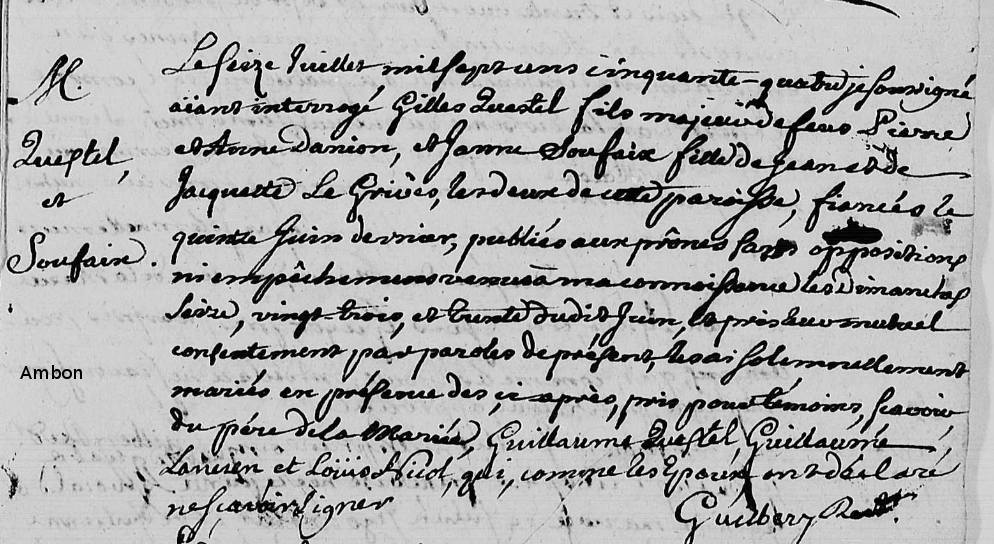 M.
Questel,
et
Soufaix.
Ambon
Le seize Juillet mil sept cens cinquante-quatre je soussigné
aiant interrogé Gilles Questel fils majeur de feus Pierre
et Anne Danion, et Janne Soufaix fille de Jean et de
Jacquette Le Griès, les deux de cette paroisse, fiancés le
quinze Juin dernier, publiés aux prônes sans oppositions
ni empêchemens venus à ma connoissance les Dimanches
seize, vingt-trois, et trente dudit Juin, et pris leur mutuel
consentement par paroles de présent, les ai solemnellement
mariés en présence des, ci après, pris pour témoins, scavoir
du père de la Mariée, Guillaume Questel Guillaume
Lancien et Louis Nicol, qui, comme les Epoux ont déclaré
ne scavoir signer
Guilbery